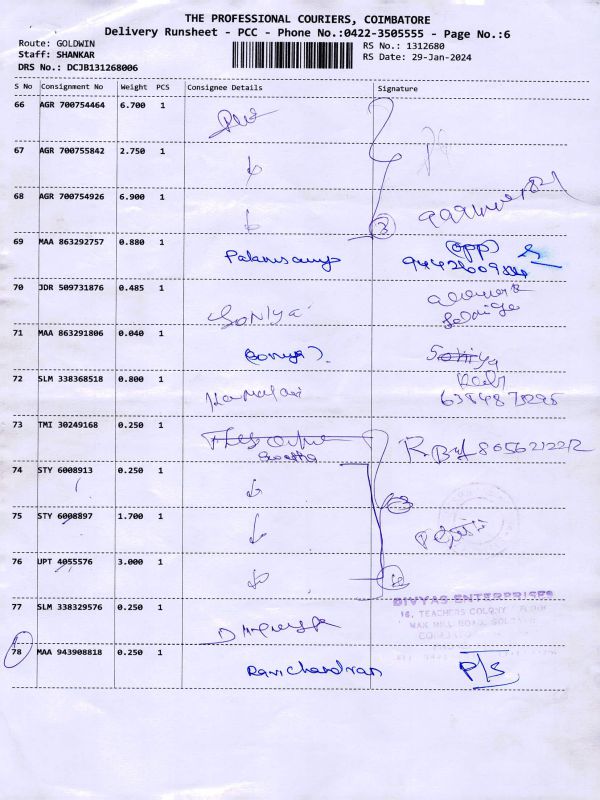 THE PROFESSIONAL COURIERS, COIMBATORE
Delivery Runsheet - PCC - Phone No.:0422-3505555 - Page No.:6
Route: GOLDWIN
RS No.: 1312680
Staff: SHANKAR
RS Date: 29-Jan-2024
DRS No.: DCJB131268006
S No Consignment No Weight PCS Consignee Details Signature
66 AGR 700754464 6.700 1
67 AGR 700755842 2.750 1
68 AGR 700754926 6.900 1
69 MAA 863292757 0.880 1 Palanisamy
70 JDR 509731876 0.485 1 Soniya
71 MAA 863291806 0.040 1 (Soniya). Soniya
72 SLM 338368518 0.800 1
73 TMI 30249168 0.250 1
74 STY 6008913 0.250 1
75 STY 6008897 1.700 1
76 UPT 4055576 3.000 1
DIVYAS ENTERPRISES
77 SLM 338329576 0.250 1
78 MAA 943908818 0.250 1 Ravichandran P/S